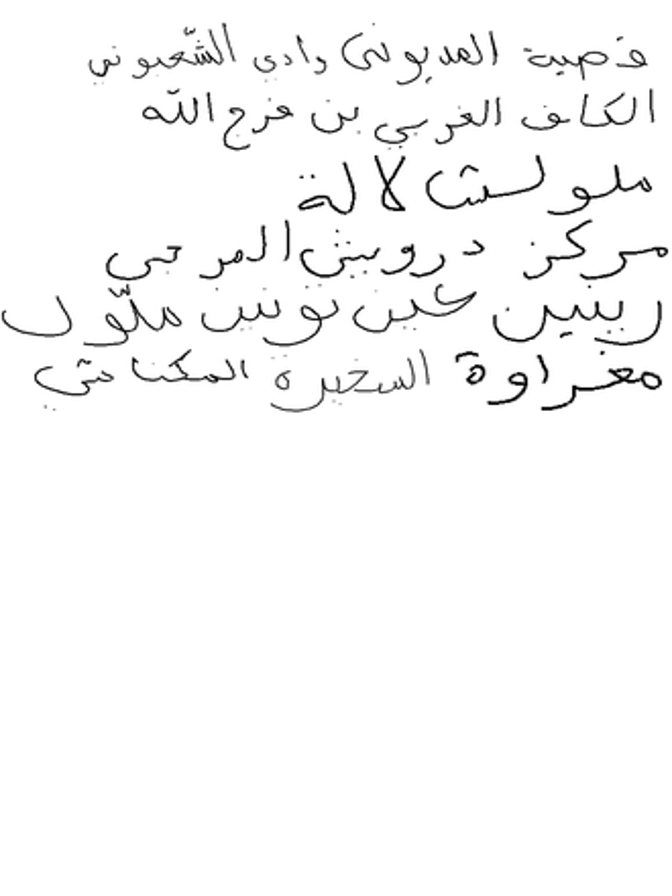 قصيبة المديوني وادي الشّعبوني
الكاف الغربي بن فرج الله
شلالة
مركز درويش المرجى
عين تونين ملّول
مغراوة السخيرة المكناسي